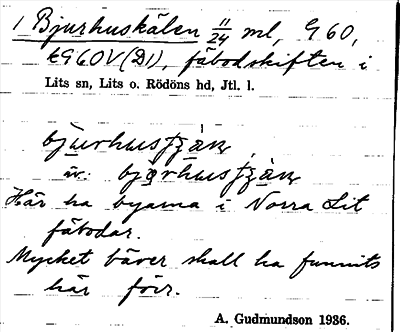 1 Bjurhuskälen 11/24 ml, G 60,
€G60V(D1), fäbodskiften i
Lits sn, Lits o. Rödöns hd, Jtl. l.
bjurhus
äv.
Här ha byarna i Norra Lit
fäbodar.
Mycket bäver skall ha funnits
här förr.
A. Gudmundson 1936.